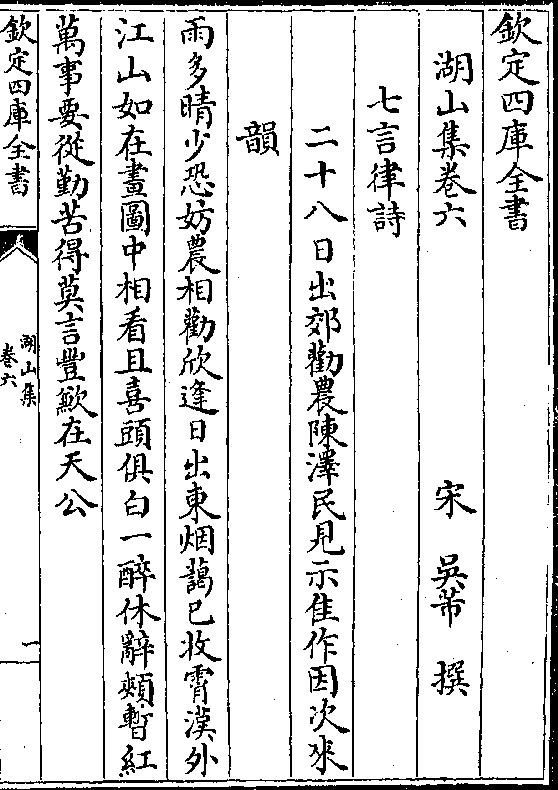 欽定四庫全書
湖山集卷六
宋　吳芾　撰
七言律詩
二十八日出郊勸農陳澤民見示佳作因次來
韻
雨多晴少恐妨農相勸欣逢日出東烟藹已收霄漢外
江山如在畫圖中相看且喜頭俱白一醉休辭頰暫紅
萬事要從勤苦得莫言豐歉在天公
欽定四庫全書
湖山集
卷六
一